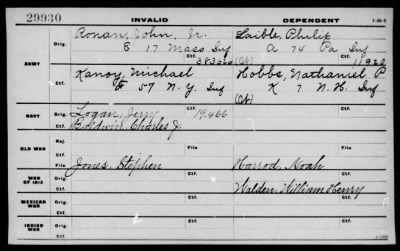 29930 INVALID DEPENDENT
ARMY
Orig. Ronan, John, Jr. Laible, Philip
E 17 Mass Inf A 74 Pa Inf
Ctf. (N)
Orig. Kanoy, Michael Hobbs, Nathaniel P
57 N. Y. Inf K 7 N. H. Inf
Ctf. (N)
NAVY
Orig. Logan, Jerry 19,466
Ctf. Baldwin, Charles J.
OLD WAR
Rej. File File
WAR OF 1812
Orig. Jones, Stephen Harrod, Noah
Ctf. Walden, William Henry
MEXICAN WAR
Orig.
Ctf. Ctf.
INDIAN WAR
Orig.
Ctf. Ctf.